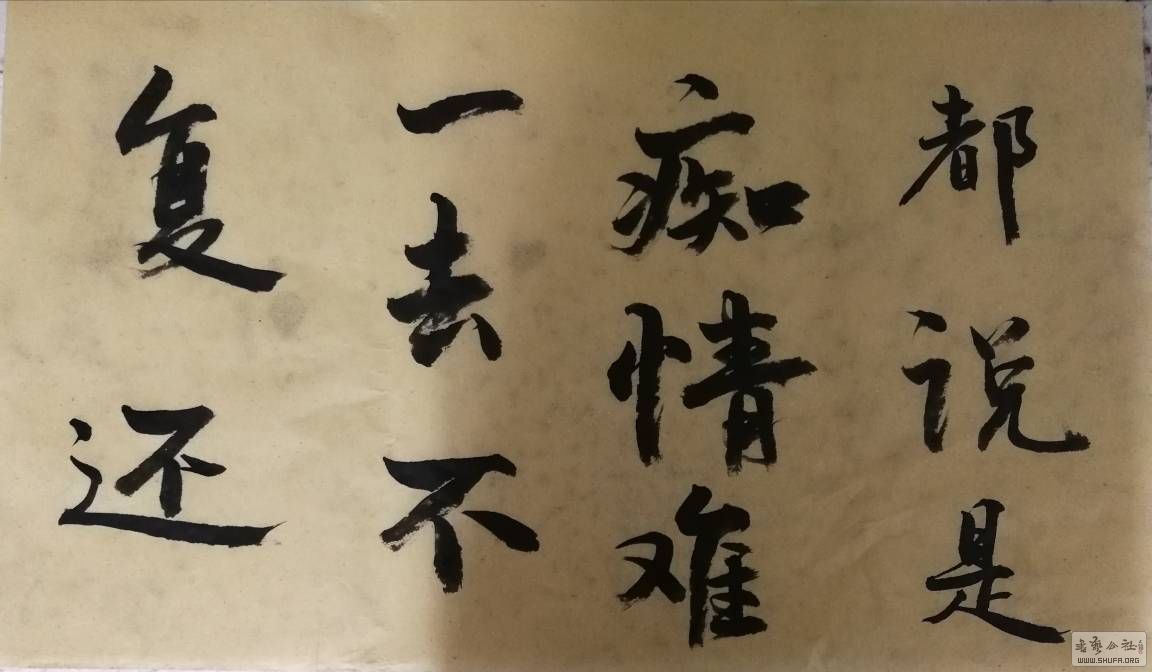 都说是
痴情难
一去不
复还
书艺公社
WWW.SHUFA.ORG